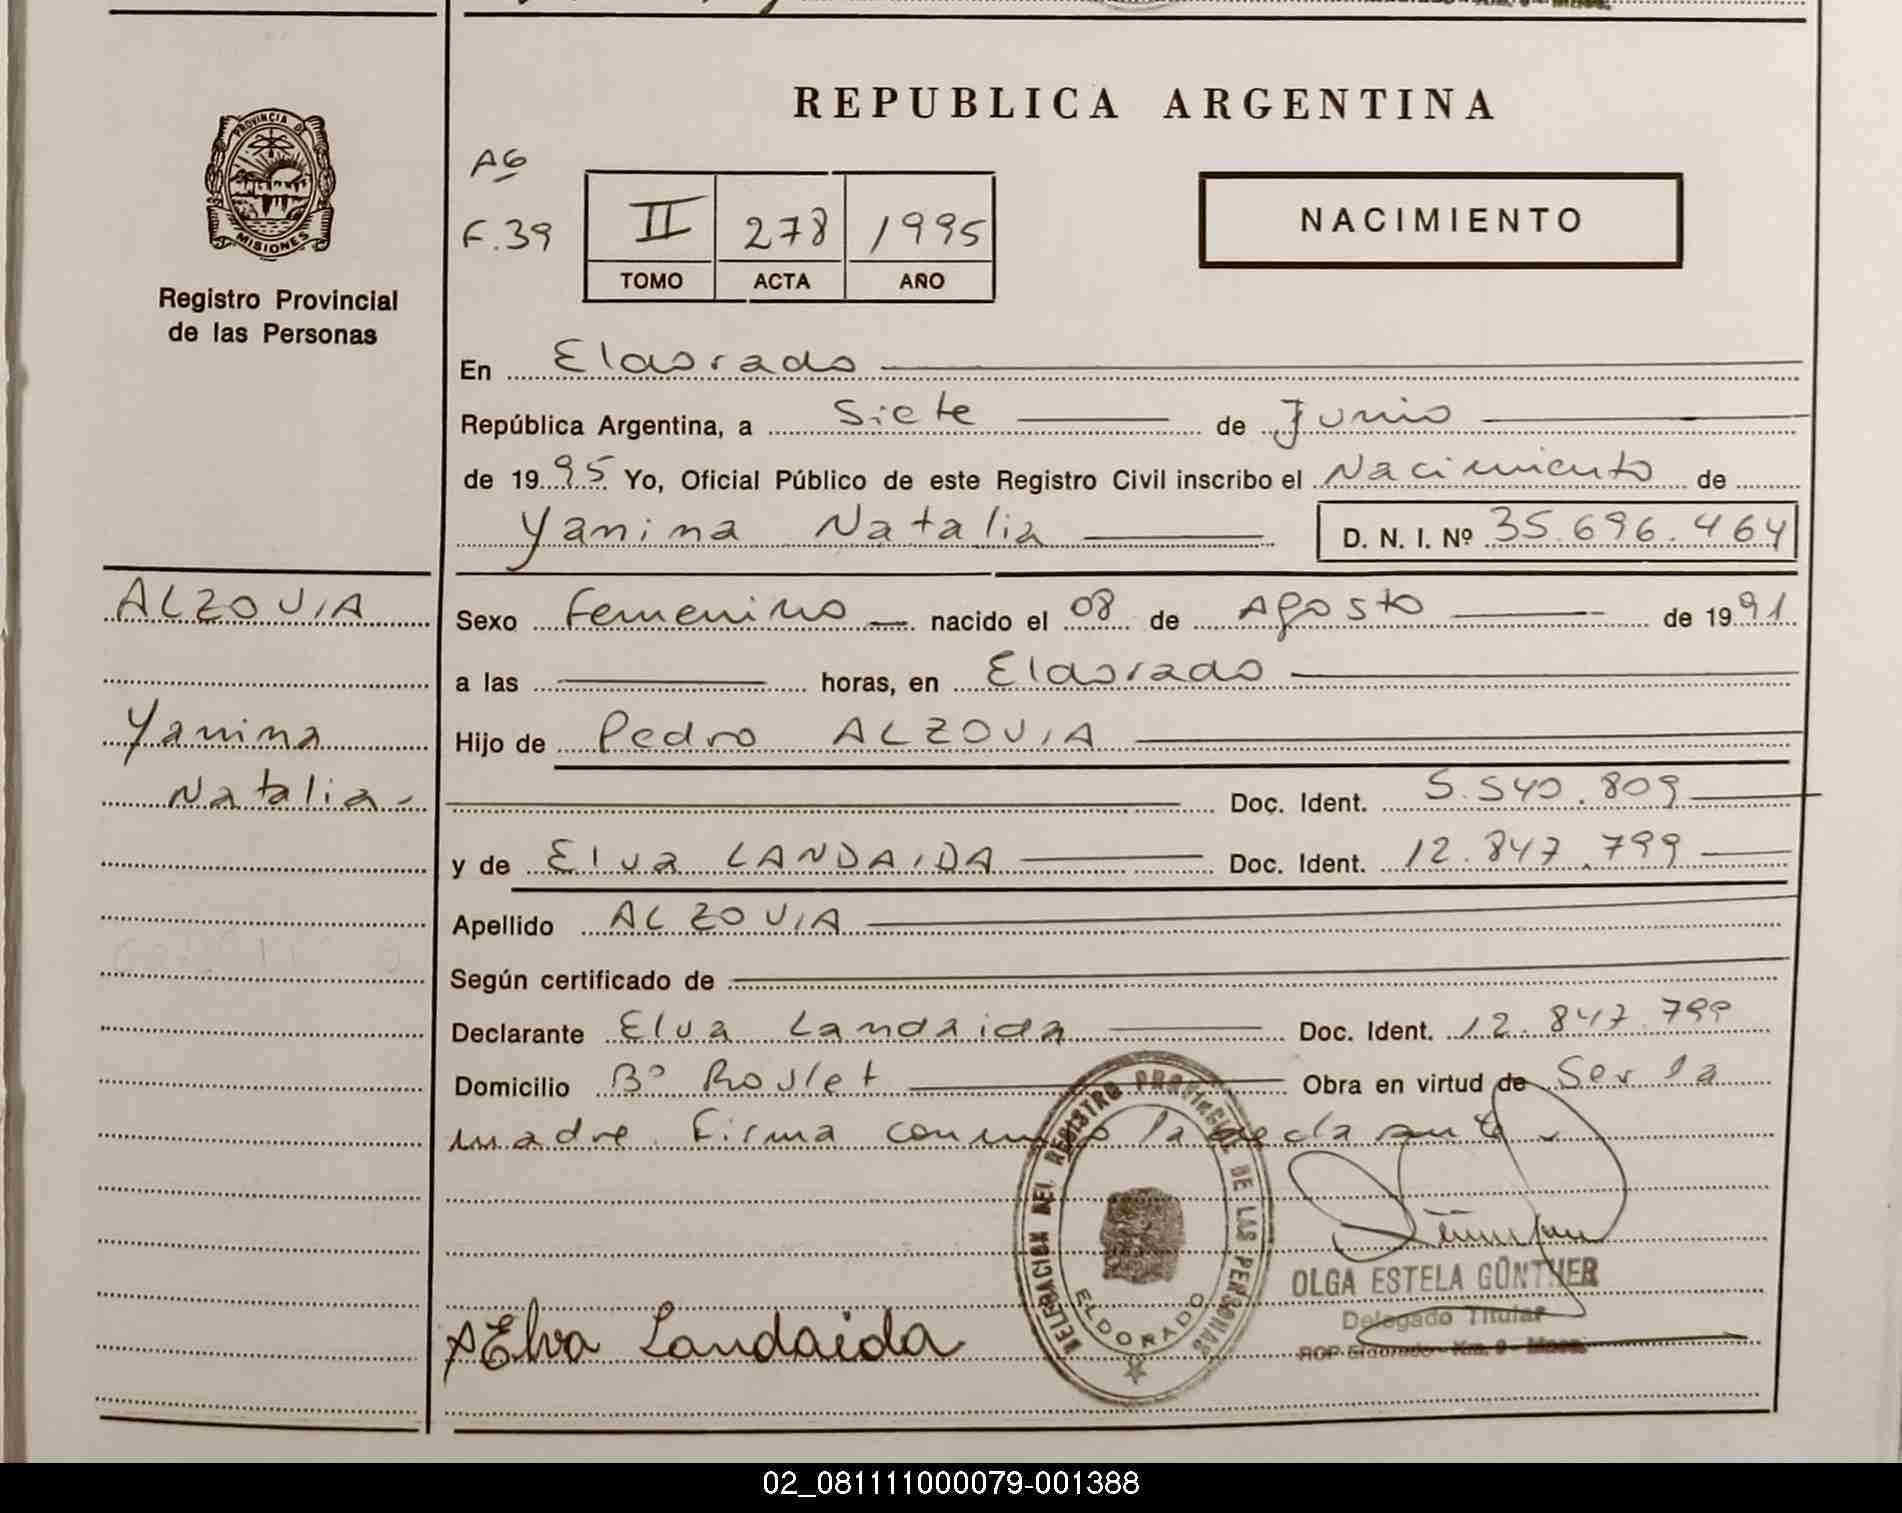 REPUBLICA ARGENTINA
PROVINCIA DE
MISIONES
Registro Provincial
de las Personas
A6
F.39
II 278 1995
TOMO ACTA AÑO
NACIMIENTO
En Eldorado
República Argentina, a Siete de Junio
de 1995 Yo, Oficial Público de este Registro Civil inscribo el Nacimiento de
Yanina Natalia D. N. I. Nº 35.696.464
ALZOVIA
Yanina
Natalia-
Sexo Femenino nacido el 08 de Agosto de 1991
a las horas, en Eldorado
Hijo de Pedro ALZOVIA
Doc. Ident. 5.540.809
y de Elva LANDAIDA Doc. Ident. 12.847.799
Apellido ALZOVIA
Según certificado de
Declarante Elva Landaida Doc. Ident. 12.847.799
Domicilio Bº Roulet Obra en virtud de Ser la
madre. Firma conmigo la declarante
DELEGACION DEL REGISTRO PROVINCIAL DE LAS PERSONAS
ELDORADO
OLGA ESTELA GÜNTHER
Delegado Titular
RCP Eldorado - Km. 9 - Mnes.
Elva Landaida
02_081111000079-001388